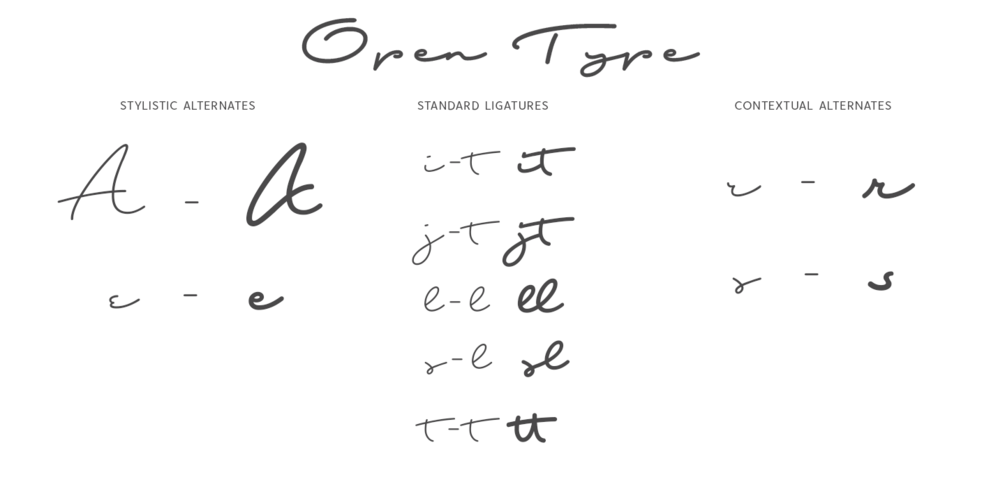 Open Type
STYLISTIC ALTERNATES
STANDARD LIGATURES
CONTEXTUAL ALTERNATES
A - A
e - e
i-t it
j-t jt
l-l ll
s-l sl
t-t tt
r - r
s - s